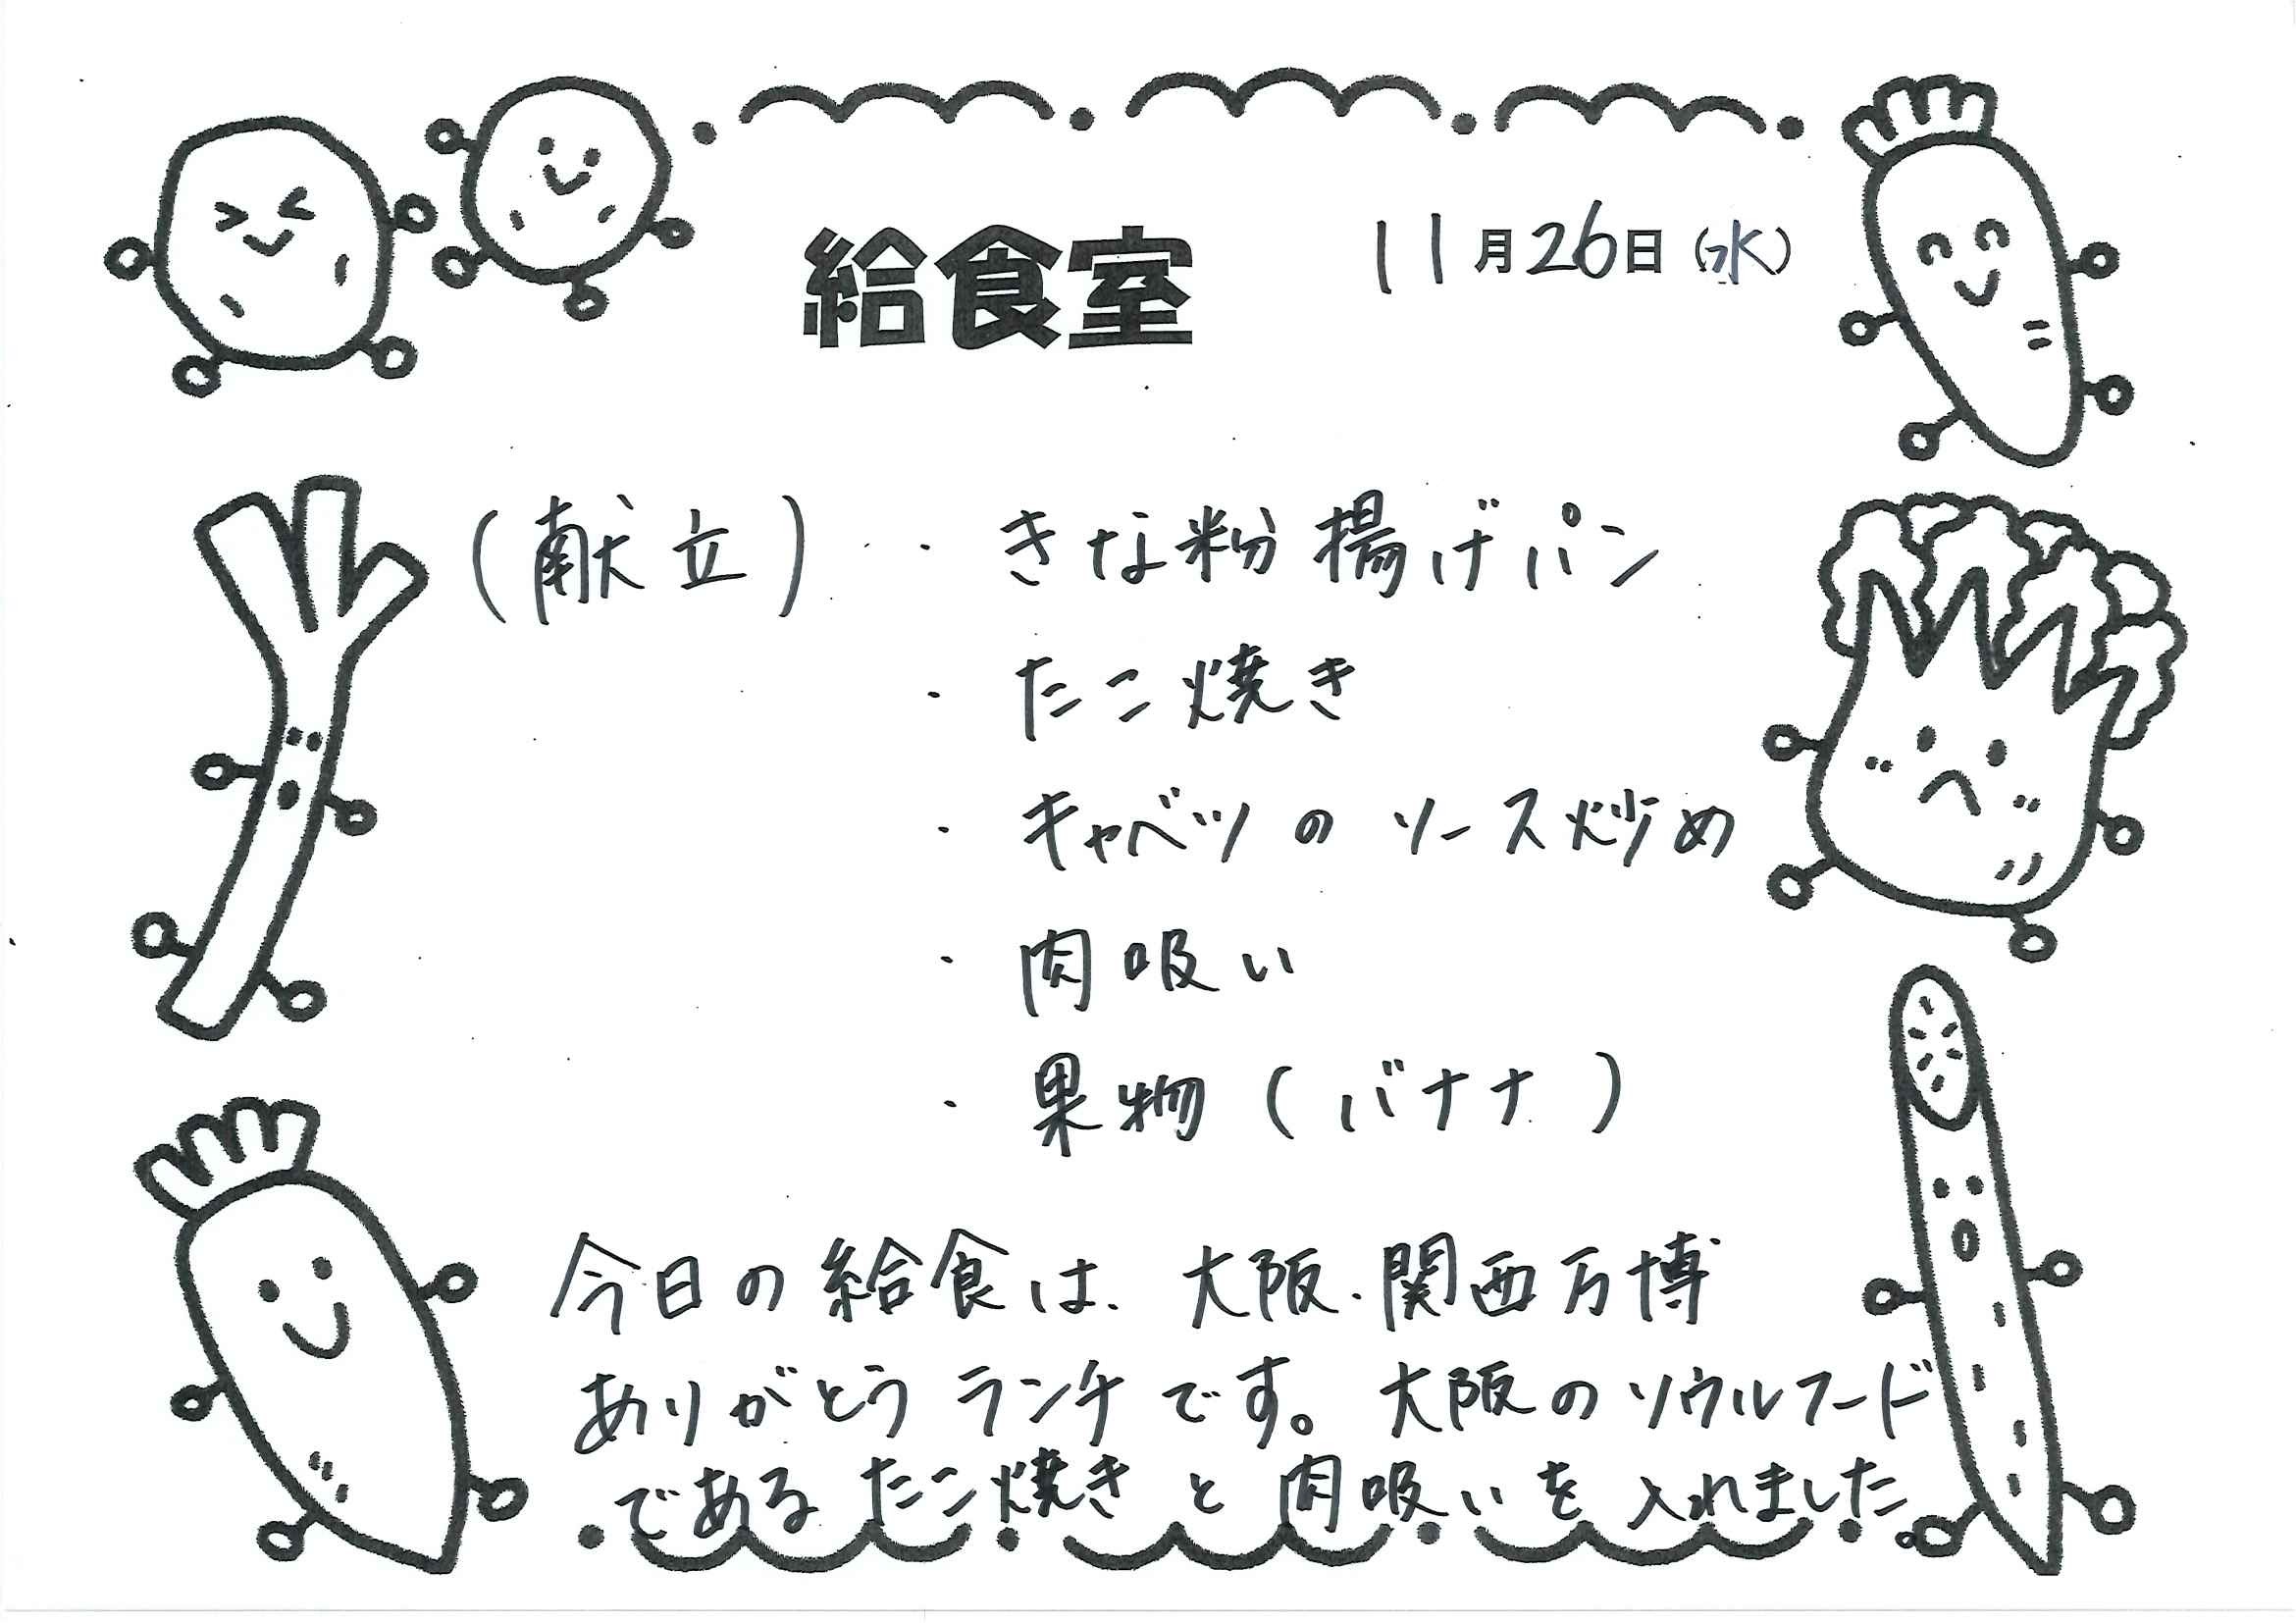 給食室
11月26日(水)
(献立)・きな粉揚げパン
・たこ焼き
・キャベツのソース炒め
・肉吸い
・果物(バナナ)
今日の給食は、大阪・関西万博
ありがとうランチです。大阪のソウルフード
であるたこ焼きと肉吸いを入れました。